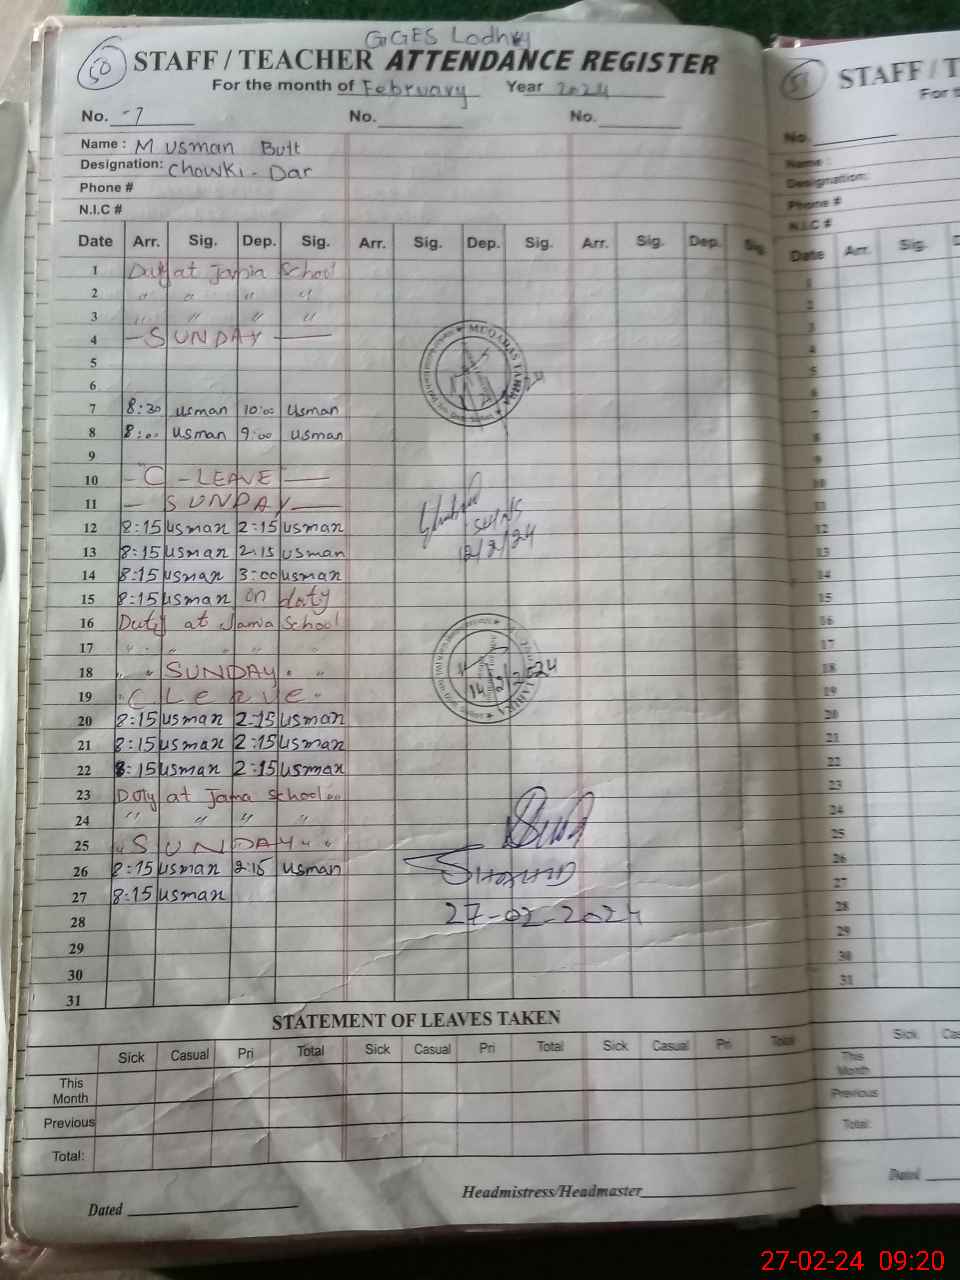 GGES Lodhy
50 STAFF / TEACHER ATTENDANCE REGISTER
For the month of February Year 2024
No. -7 No. No.
Name : M Usman Butt
Designation: Chowki-Dar
Phone #
N.I.C #
Date Arr. Sig. Dep. Sig. Arr. Sig. Dep. Sig. Arr. Sig. Dep. Sig.
1 Duty at Jamia School
2 " " " "
3 " " " "
4 - SUNDAY -
5
6
7 8:30 usman 10:00 usman
8 8:00 usman 9:00 usman
9
10 - "C - LEAVE" -
11 - SUNDAY -
12 8:15 usman 2:15 usman
13 8:15 usman 2:15 usman
14 8:15 usman 3:00 usman
15 8:15 usman on duty
16 Duty at Jamia School
17 " " " "
18 " " SUNDAY " "
19 "C Leave "
20 8:15 usman 2:15 usman
21 8:15 usman 2:15 usman
22 8:15 usman 2:15 usman
23 Duty at Jama School
24 " " " "
25 " SUNDAY " "
26 8:15 usman 2:15 usman
27 8:15 usman
28
29
30
31
MUQADAS TAHIRA
12/2/24
27-02-2024
STATEMENT OF LEAVES TAKEN
Sick Casual Pri Total Sick Casual Pri Total Sick Casual Pri Total
This Month
Previous
Total:
Dated
Headmistress/Headmaster
51 STAFF / T
For t
No.
Name :
Designation:
Phone #
N.I.C #
Date Arr. Sig. D
1
2
3
4
5
6
7
8
9
10
11
12
13
14
15
16
17
18
19
20
21
22
23
24
25
26
27
28
29
30
31
Sick Cas
This Month
Previous
Total:
Dated
27-02-24 09:20